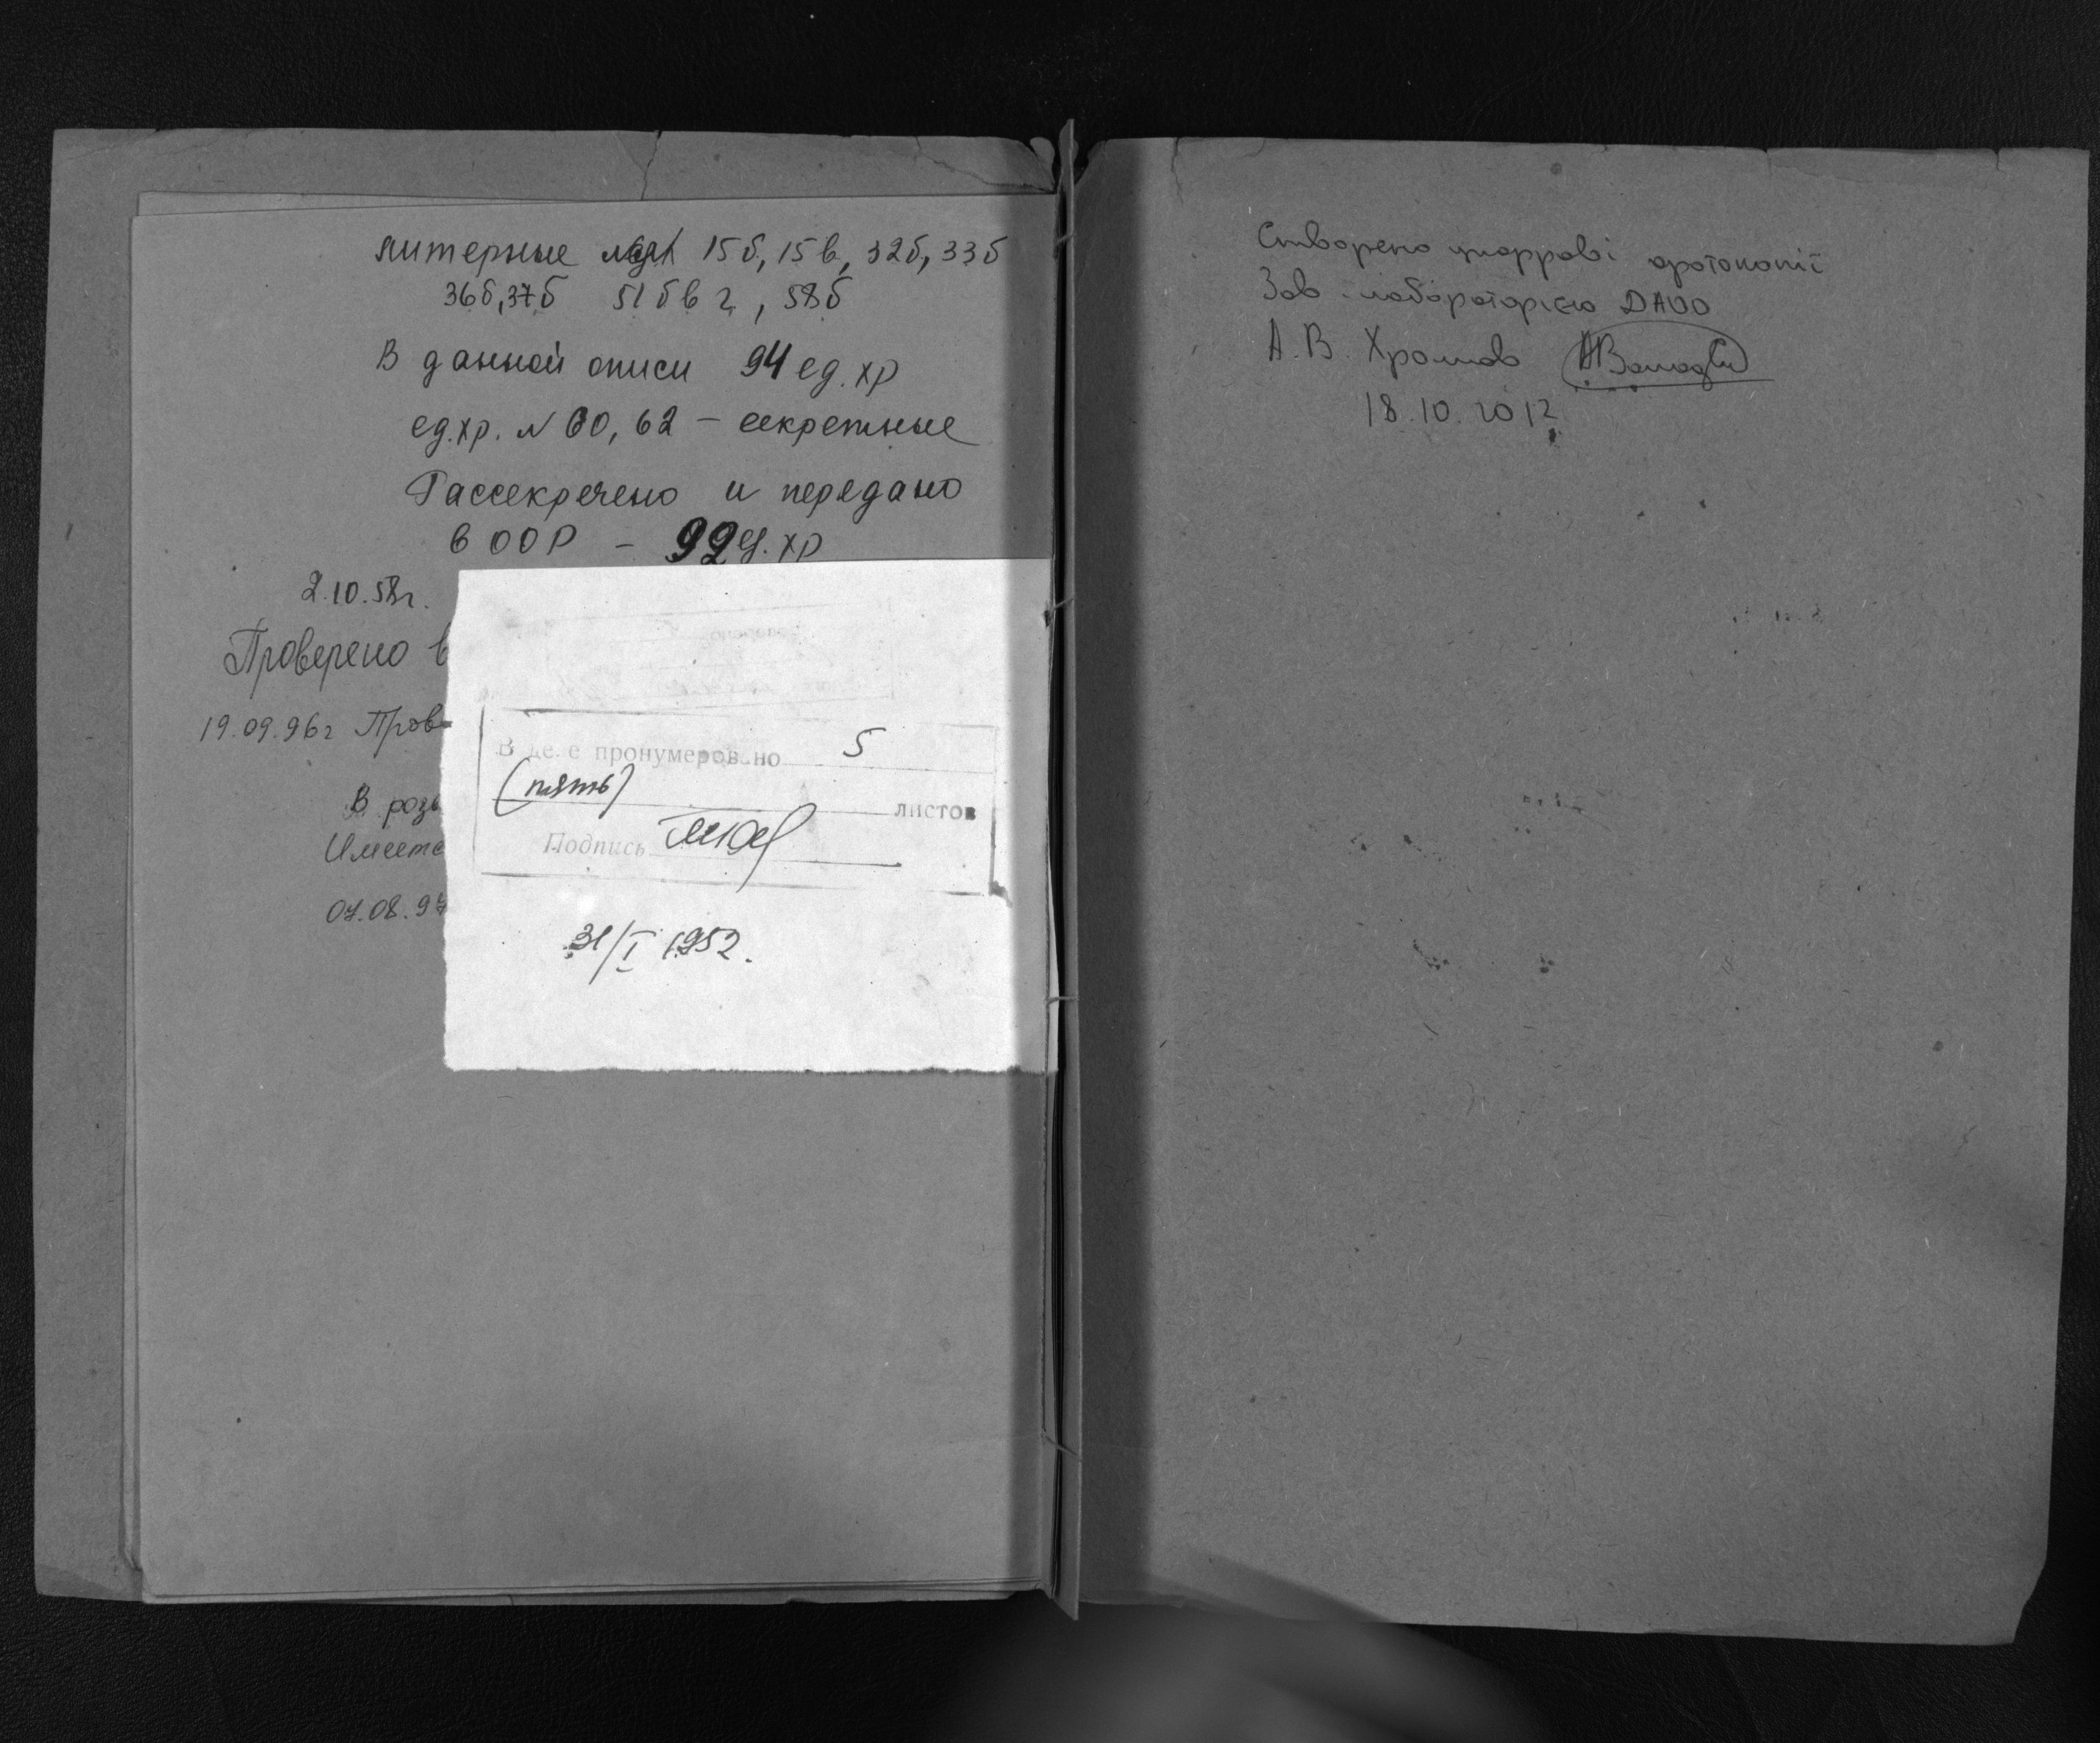 литерные №№ 15б, 15в, 32б, 33б
36б, 37б 51 б в г, 58б
В данной описи 94 ед. хр
ед. хр. № 60, 62 – секретные
Рассекречено и передано
в ООР – 92 ед. хр
2.10.58г.
Проверено в
19.09.96г Пров
В розы
Имеетс
07.08.97
В деле пронумеровано 5
(пять)
листов
Подпись
31/I 1952.
Створено цифрові фотокопії
Зав. лабораторією ДАОО
А. В. Хромов
18.10.2012